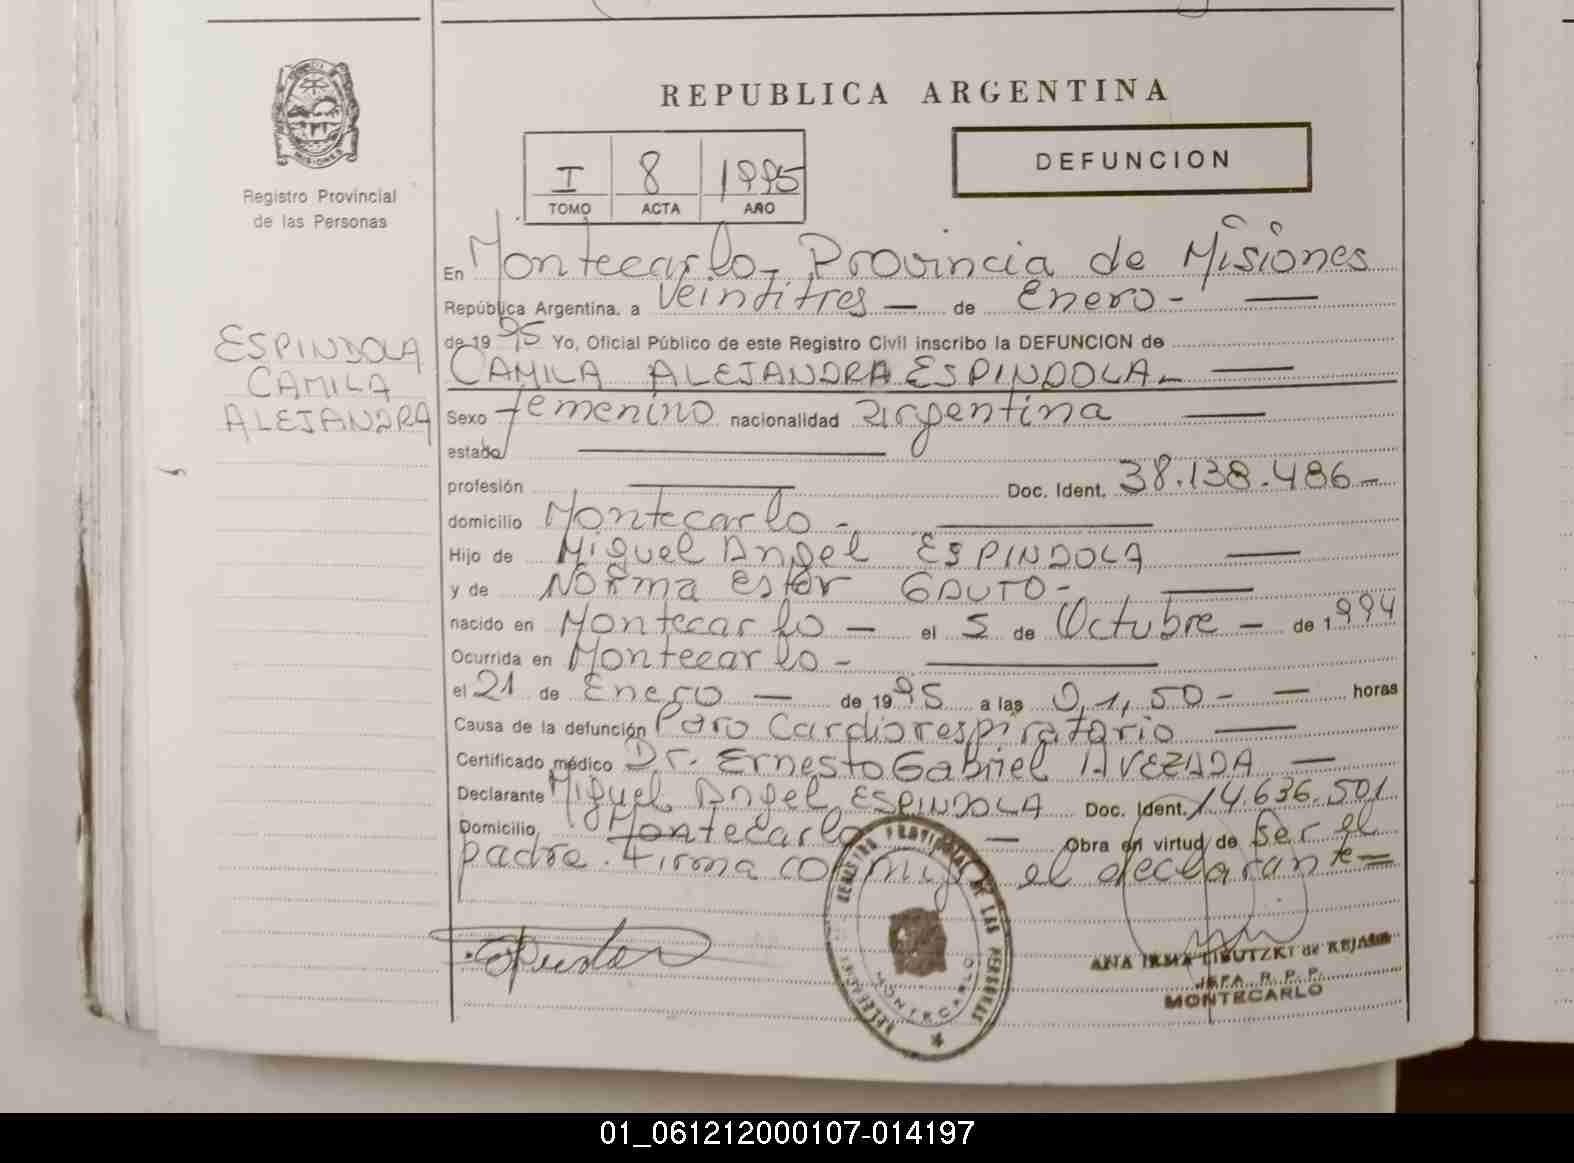 REPUBLICA ARGENTINA
Registro Provincial
de las Personas
I 8 1995
TOMO ACTA AÑO
DEFUNCION
En Montecarlo - Provincia de Misiones
República Argentina, a veintitres — de Enero - —
ESPINDOLA
CAMILA
ALEJANDRA
de 19 95 Yo, Oficial Público de este Registro Civil inscribo la DEFUNCION de
CAMILA ALEJANDRA ESPINDOLA - —
Sexo femenino nacionalidad argentina —
estado —
profesión — Doc. Ident. 38.138.486 -
domicilio Montecarlo - —
Hijo de Miguel Angel ESPINDOLA —
y de Norma Ester GAUTO - —
nacido en Montecarlo — el 5 de Octubre — de 1994
Ocurrida en Montecarlo - —
el 21 de Enero — de 1995 a las 01,50 - — horas
Causa de la defunción Paro Cardiorespiratorio —
Certificado médico Dr. Ernesto Gabriel AVEZADA —
Declarante Miguel Angel ESPINDOLA Doc. Ident. 14.636.501
Domicilio Montecarlo — Obra en virtud de Ser el
padre. Firma conmigo el declarante =
REGISTRO PROVINCIAL DE LAS PERSONAS
MONTECARLO
ANA IRMA de
JEFA R. P. P.
MONTECARLO
01_061212000107-014197